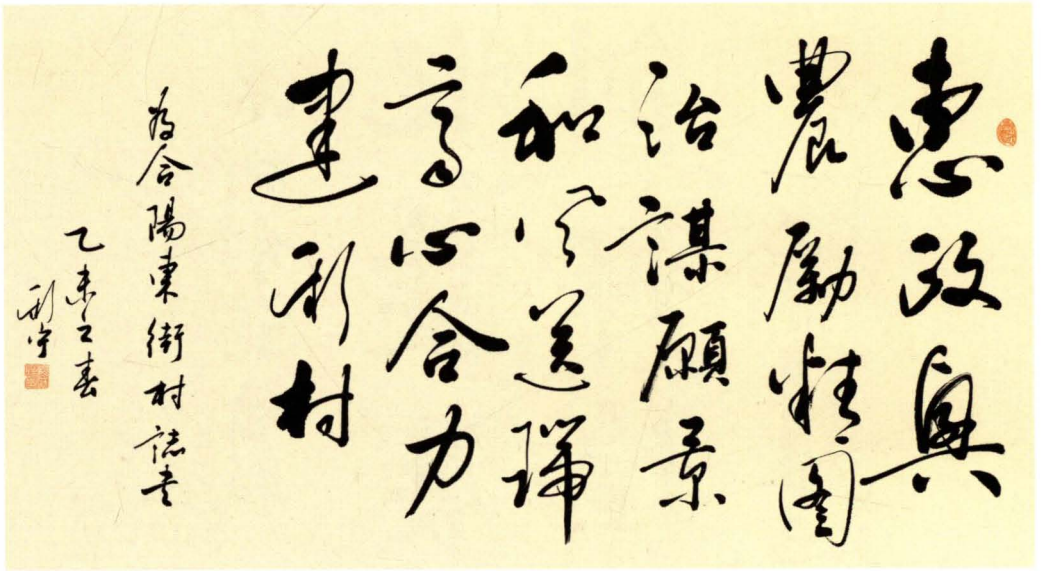 惠政興
農勵精圖
治謀願景
和风送瑞
齐心合力
建新村
为合陽東街村誌書
乙未之春